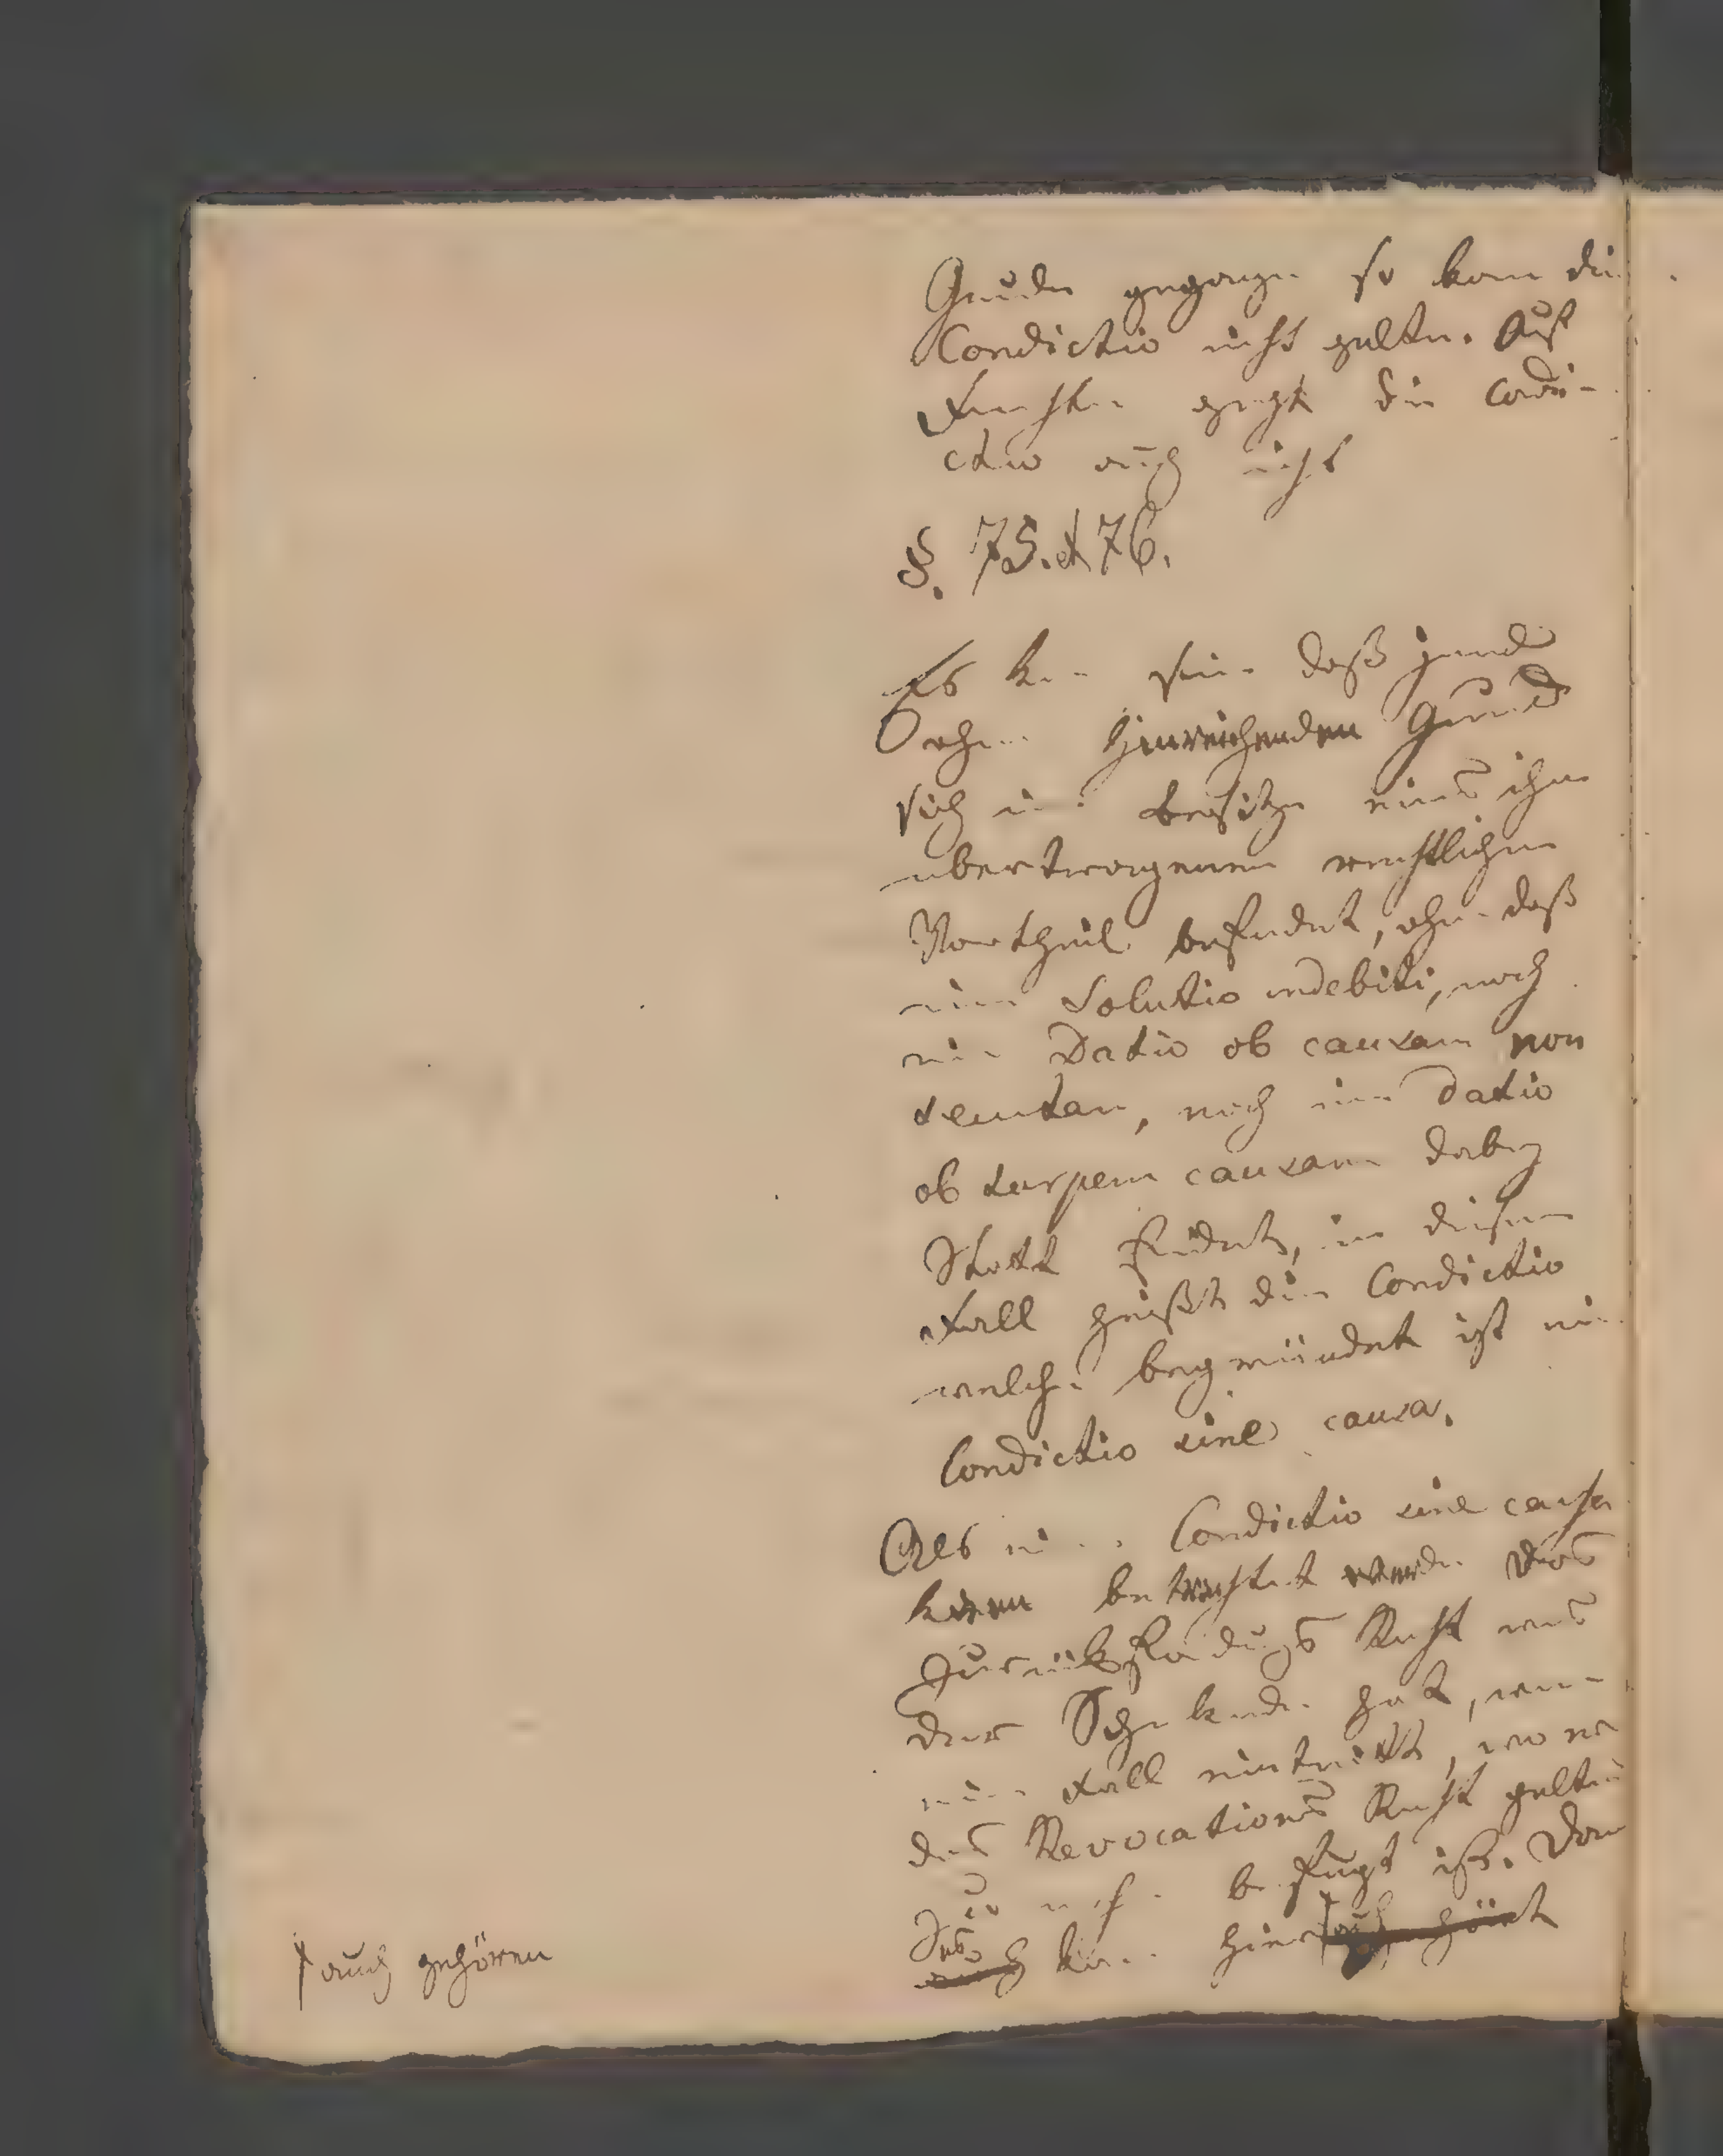 Grunde gegangen so kann die
Condictio nicht gelten. Auf
Früchte geht die Condi-
ctio auch nicht
§. 75. et 76.
Es kann seyn daß jemand
ohne hinreichenden Grund
sich im Besitze eines ihm
übertragenen rechtlichen
Vortheil befindet, ohne daß
eine Solutio indebiti, noch
eine Datio ob causam non
secutam, noch eine Datio
ob turpem causam dabey
Statt findet, in diesem
Fall heißt die Condictio
welche begründet ist eine
Condictio sine causa.
Als eine Condictio sine causa
kann betrachtet werden das
Zurückfoderungs Recht was
der Schenkende hat, wenn
ein Fall eintritt, wo er
das Revocations Recht geltend
zu machen befugt ist. Dann
kann hier
auch gehören